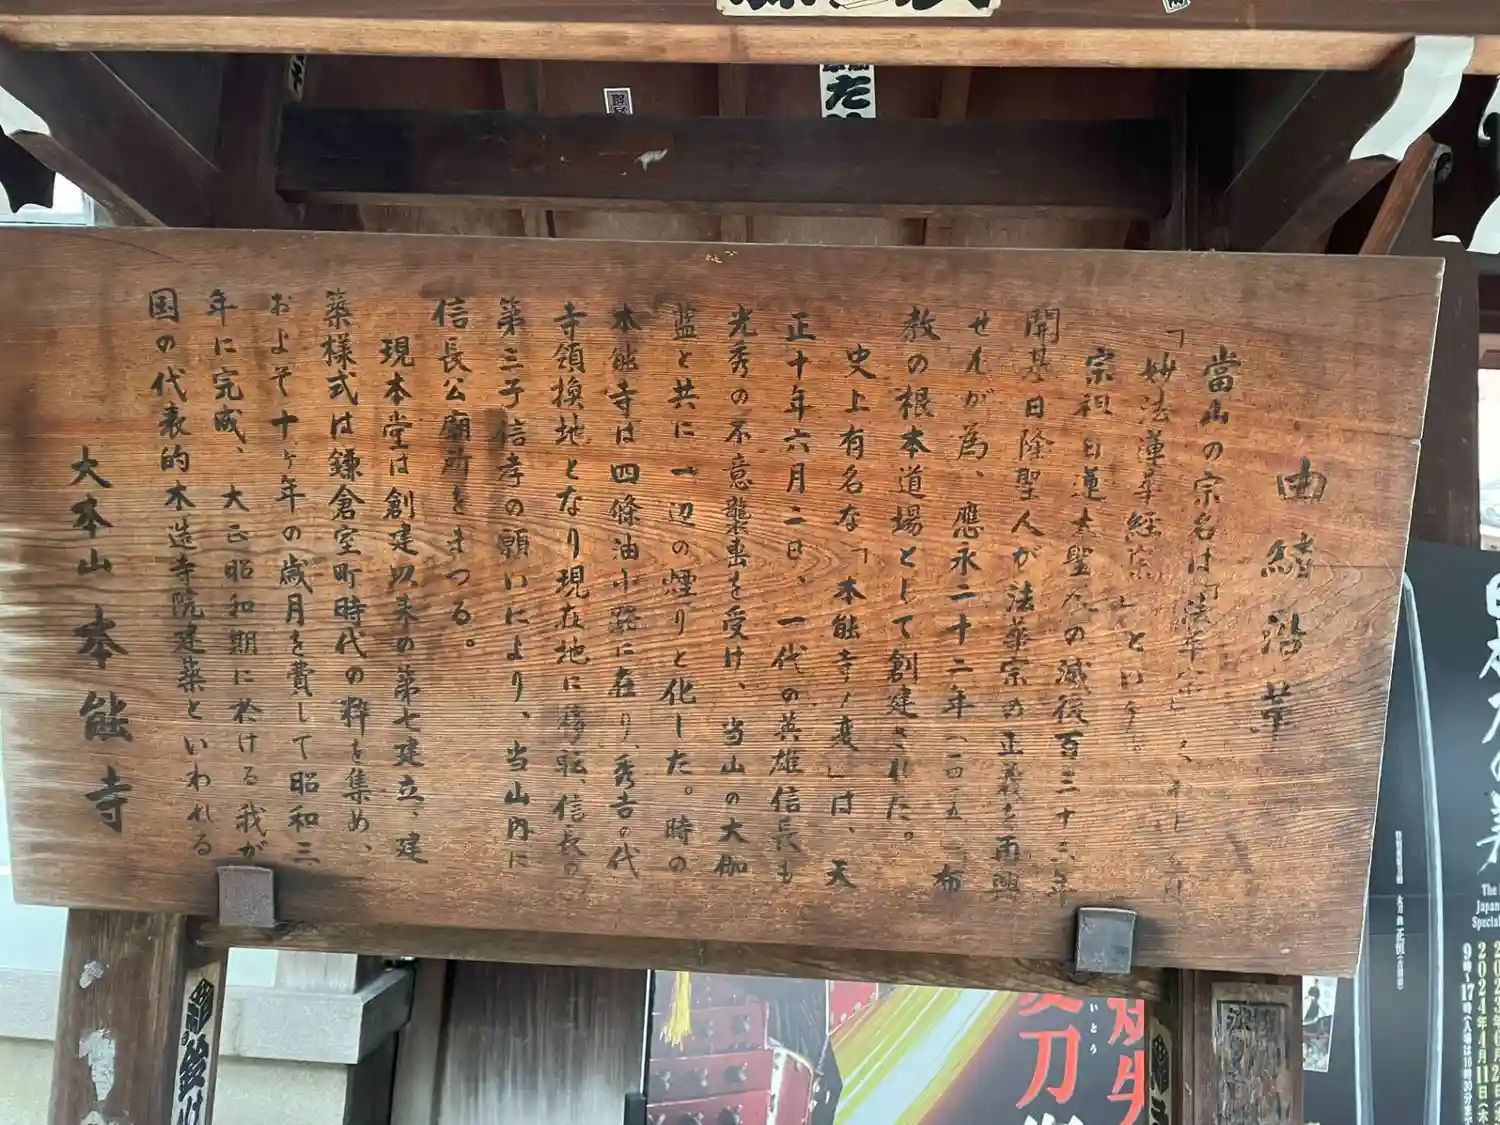 由緒沿革
當山の宗名は「法華宗」
「妙法蓮華経宗」という。
宗祖日蓮大聖人の滅後百三十二年
開基日隆聖人が法華宗の正義を再興
せんが為、應永二十二年(一四一五)布
教の根本道場として創建された。
史上有名な「本能寺ノ変」は、天
正十年六月二日、一代の英雄信長も
光秀の不意襲撃を受け、当山の大伽
藍と共に一辺の煙りと化した。時の
本能寺は四條油小路に在り、秀吉の代
寺領換地となり現在地に移転、信長の
第三子信孝の願いにより、当山内に
信長公廟所をまつる。
現本堂は創建以来の第七建立、建
築様式は鎌倉室町時代の粋を集め、
およそ十ヶ年の歳月を費して昭和三
年に完成、大正昭和期に於ける我が
国の代表的木造寺院建築といわれる
大本山本能寺
刀
いとう
The
Japan
Special
9時~17時(入場は16時30分まで